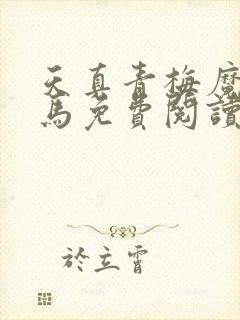 天真青梅魔
馬免費閱讀
於立霄